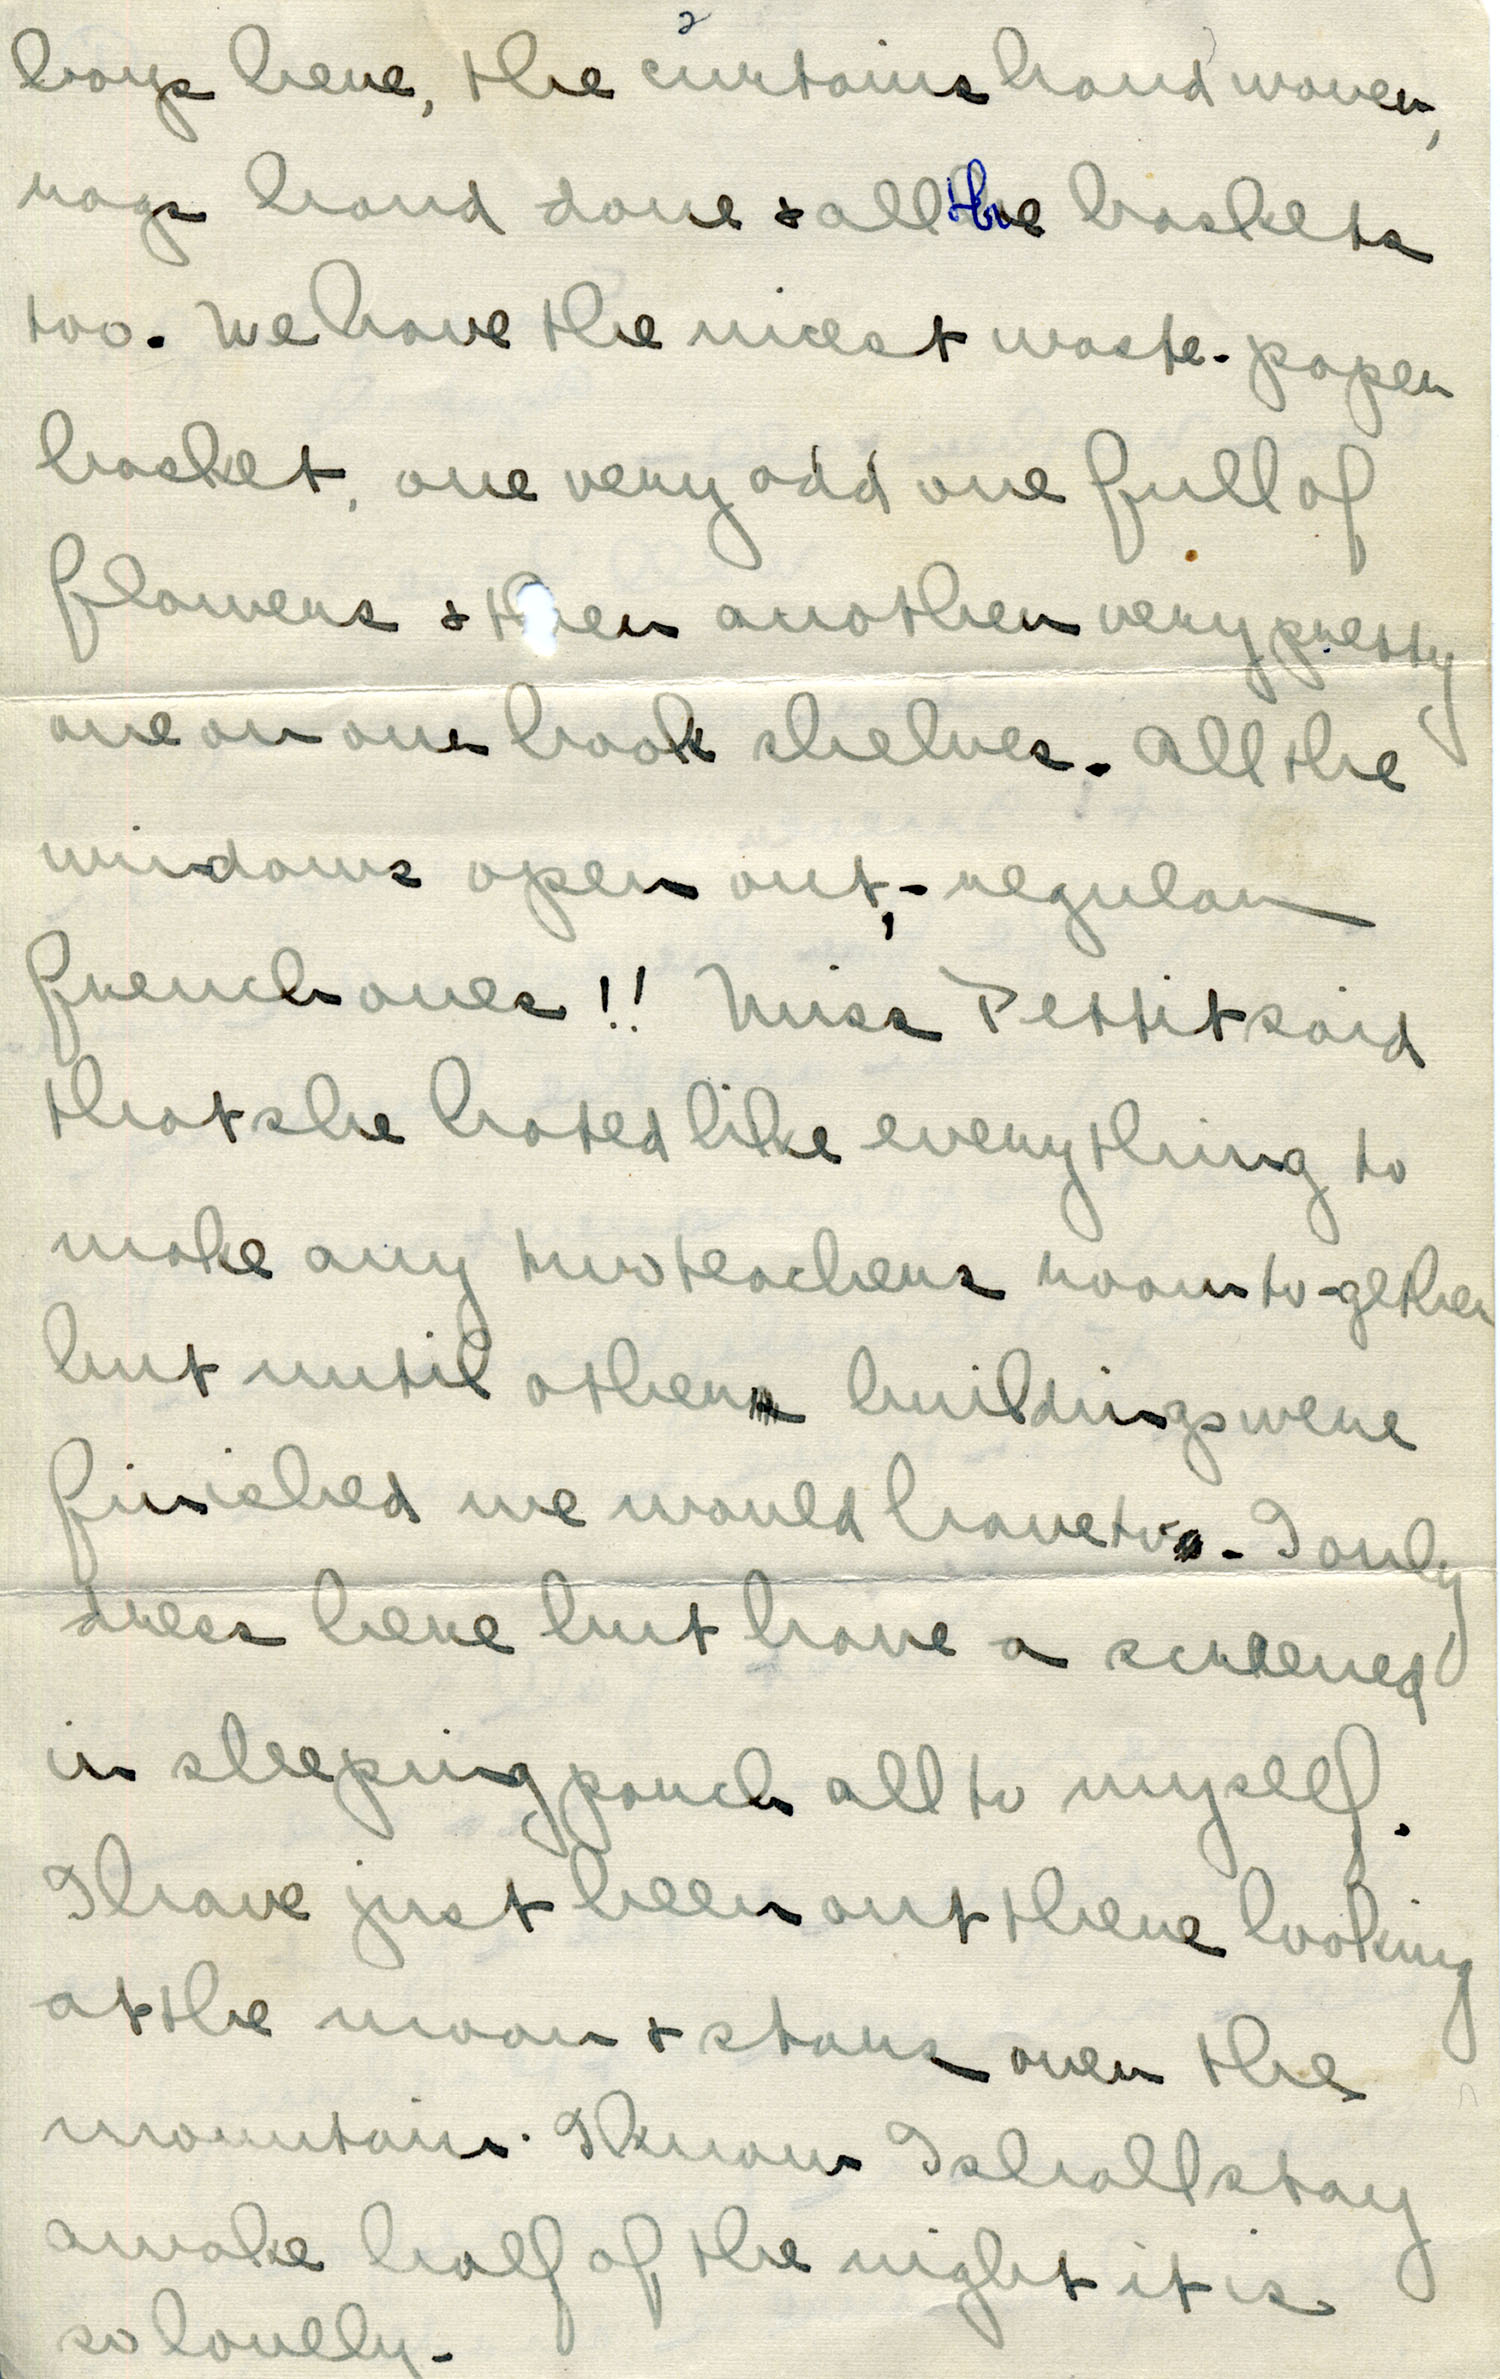 2
boys here, the curtains hand woven,
rags hand done & all the baskets
too. We have the nicest waste-paper
basket, one very odd one full of
flowers & then another very pretty
one on our book shelves. All the
windows open out, - regular
french ones!! Miss Pettit said
that she hated like everything to
make any two teachers room to-gether
but until other buildings were
finished we would have to. I only
dress here but have a screened
in sleeping porch all to myself.
I have just been out there looking
at the moon & stars over the
mountain. I know I shall stay
awake half of the night it is
so lovely.